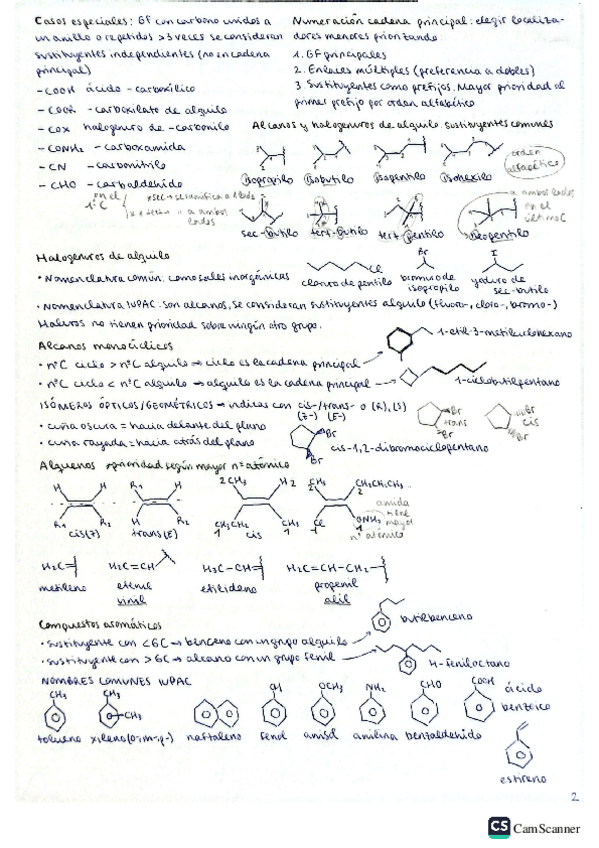 Casos especiales: GF con carbono unidos a
un anillo o repetidos >3 veces se consideran
sustituyentes independientes (no en cadena
principal)
-COOH ácido -carboxílico
-COOR -carboxilato de alquilo
-COX halogenuro de -carbonilo
-CONH2 -carboxamida
-CN -carbonitrilo
-CHO -carbaldehído
en el
1ºC
a ambos
lados
Numeración cadena principal: elegir localiza-
dores menores priorizando:
1. GF principales
2. Enlaces múltiples (preferencia a dobles)
3. Sustituyentes como prefijos. Mayor prioridad al
primer prefijo por orden alfabético
Alcanos y halogenuros de alquilo. Sustituyentes comunes
orden
alfabético
isopropilo isobutilo isopentilo isohexilo
a ambos lados
en el
último C
sec-butilo tert-butilo tert-pentilo neopentilo
Halogenuros de alquilo
• Nomenclatura común: como sales inorgánicas
Cl
cloruro de pentilo
Br
bromuro de
isopropilo
I
yoduro de
sec-butilo
• Nomenclatura IUPAC: son alcanos, se consideran sustituyentes alquilo (fluoro-, cloro-, bromo-)
Haluros no tienen prioridad sobre ningún otro grupo.
Alcanos monocíclicos
• nºC ciclo > nºC alquilo → ciclo es la cadena principal
1-etil-3-metilciclohexano
• nºC ciclo < nºC alquilo → alquilo es la cadena principal
1-ciclobutilpentano
ISÓMEROS ÓPTICOS/GEOMÉTRICOS → indicas con cis-/trans- o (R),(S)
(Z-) (E-)
• cuña oscura = hacia delante del plano
• cuña rayada = hacia atrás del plano
Br
Br
cis-1,2-dibromociclopentano
Br
trans
Br
Br
cis
Br
Alquenos prioridad según mayor nº atómico
H H
R1 R2
cis(Z)
R1 H
H R2
trans(E)
2CH3 H2
CH3CH2 CH3
1 1
cis
CH3 CH2CH2CH3
2 2
Cl ONH2
1 1
amida
tiene
mayor
nº atómico
H2C=
metileno
H2C=CH
etenil
vinil
H3C-CH=
etilideno
H2C=CH-CH2-
propenil
alil
Compuestos aromáticos
butilbenceno
• sustituyente con <6C → benceno con un grupo alquilo
• sustituyente con >6C → alcano con un grupo fenil
4-feniloctano
NOMBRES COMUNES IUPAC
CH3
tolueno
CH3
CH3
xileno(o-,m-,p-)
naftaleno
OH
fenol
OCH3
anisol
NH2
anilina
CHO
benzaldehído
COOH
ácido
benzoico
estireno
2
CS CamScanner